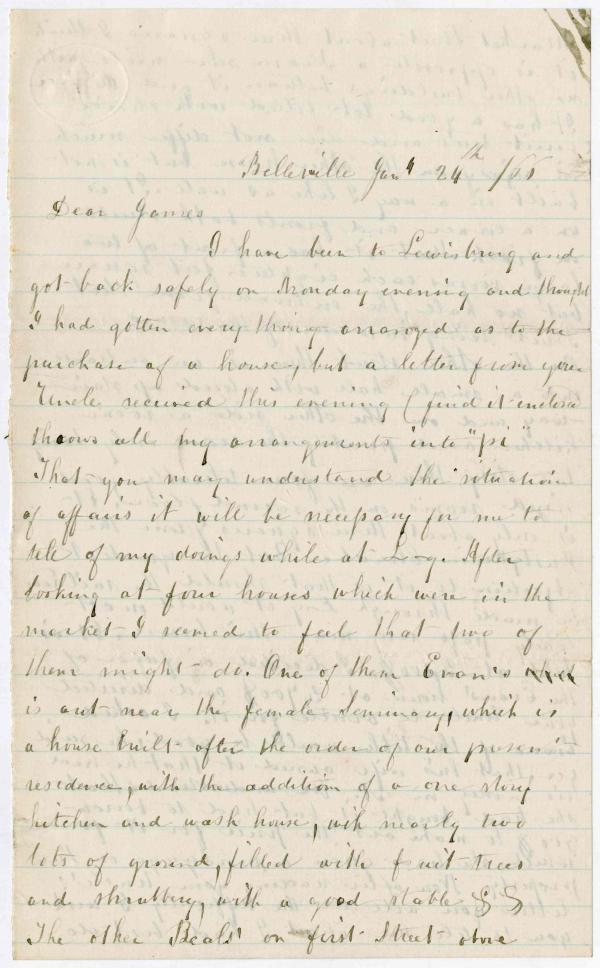 Belleville Jany 24th /66
Dear James
I have been to Lewisburg and
got back safely on Monday evening and thought
I had gotten every thing arranged as to the
purchase of a house, but a letter from your
Uncle received this evening (find it inclosed
throws all my arrangements into "pi"
That you may understand the situation
of affairs it will be necessary for me to
tell of my doings while at L-g. After
looking at four houses which were in the
market I seemed to feel that two of
them might do. One of them Evan's
is out near the female Seminary, which is
a house built after the order of our present
residence, with the addition of a one story
kitchen and wash house, with nearly two
lots of ground, filled with fruit trees
and shrubbery, with a good stable &&
The other Beals' on first Street above